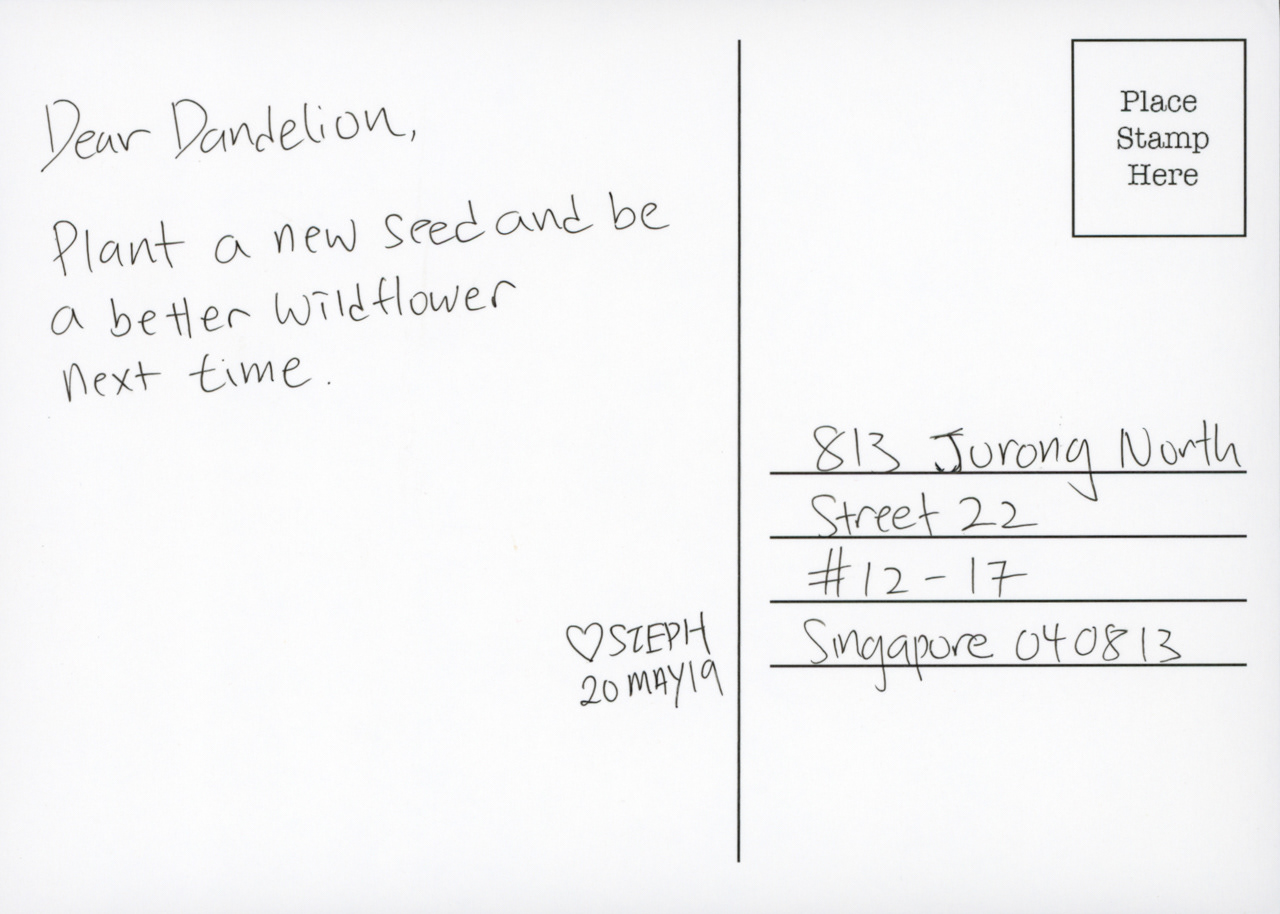 Dear Dandelion,
Plant a new seed and be
a better wildflower
next time.
♡STEPH
20 MAY19
Place
Stamp
Here
813 Jurong North
Street 22
#12-17
Singapore 040813